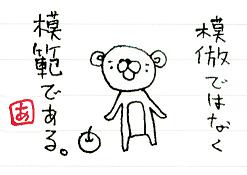 模倣ではなく
模範である。
あ